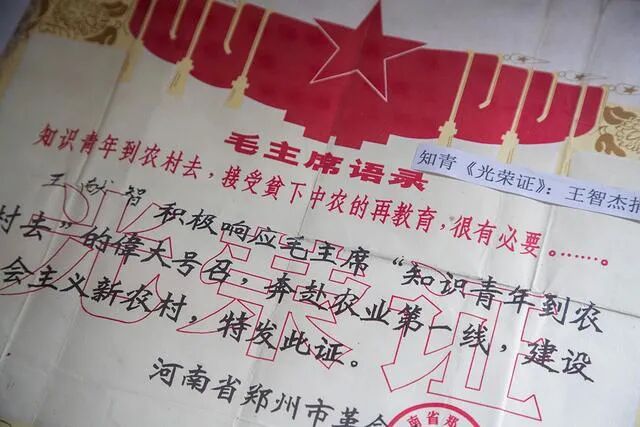 毛主席语录
知青《光荣证》：王智杰
知识青年到农村去，接受貧下中农的再教育，很有必要。……
光荣证
王 智 积极响应毛主席“知识青年到农
村去”的偉大号召，奔赴农业第一线，建设
会主义新农村，特发此证。
河南省郑州市革
南省郑